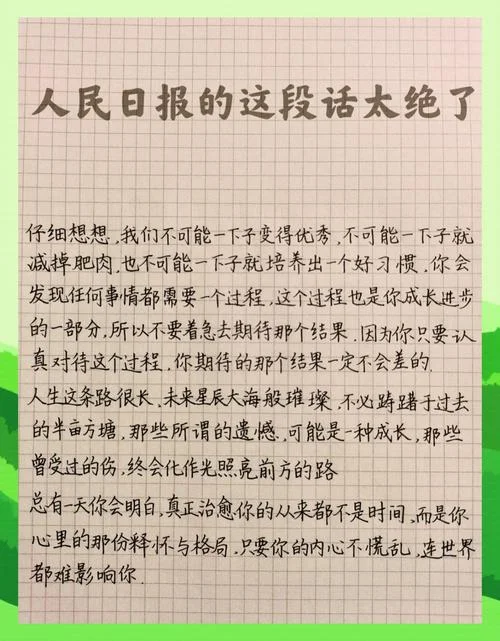 人民日报的这段话太绝了
仔细想想,我们不可能一下子变得优秀,不可能一下子就
减掉肥肉,也不可能一下子就培养出一个好习惯,你会
发现任何事情都需要一个过程,这个过程也是你成长进步
的一部分,所以不要着急去期待那个结果,因为你只要认
真对待这个过程,你期待的那个结果一定不会差的.
人生这条路很长,未来星辰大海般璀璨,不必踌躇于过去
的半亩方塘,那些所谓的遗憾,可能是一种成长,那些
曾受过的伤,终会化作光照亮前方的路
总有一天你会明白,真正治愈你的从来都不是时间,而是你
心里的那份释怀与格局,只要你的内心不慌乱,连世界
都难影响你.